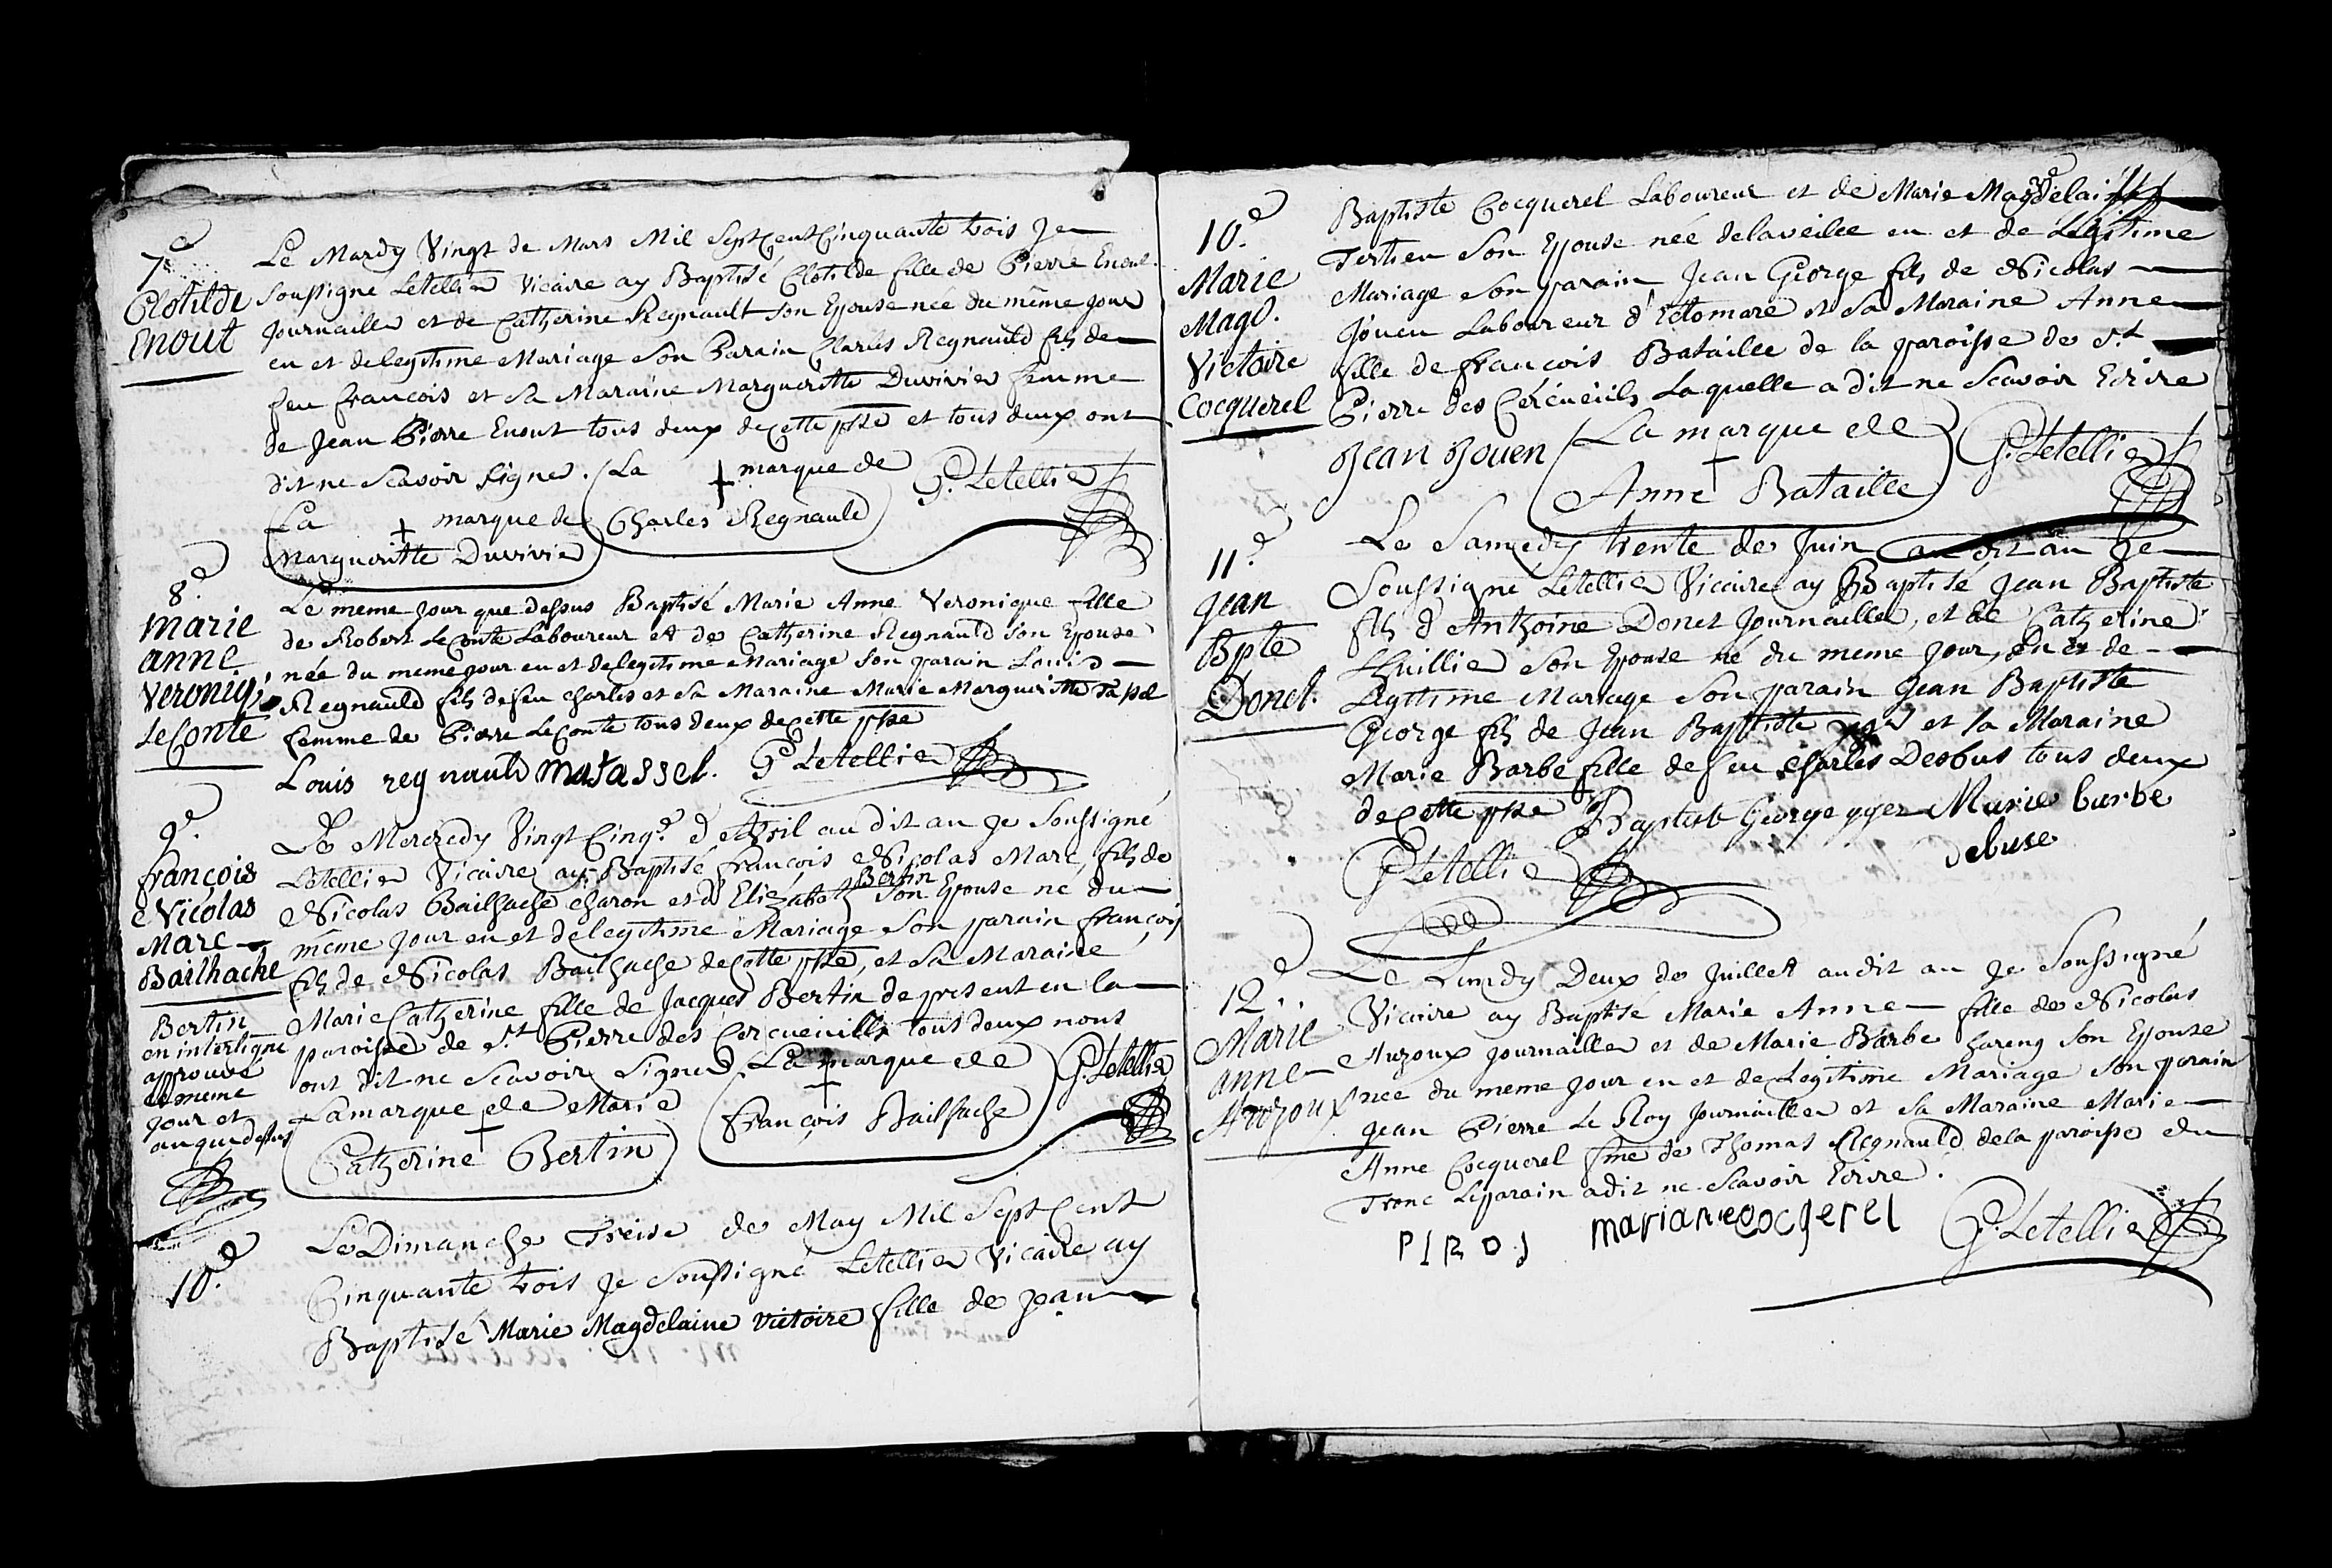 7e
Clotilde
Enout
Le Mardy Vingt de Mars Mil Sept Cent Cinquante trois Je
Soussigné Letellier Vicaire ay Baptisé Clotilde fille de Pierre Enout
Journaillier et de Catherine Regnault Son Epouse née du même jour
en et de legitime Mariage Son Parain Charles Regnauld fils de
feu francois et Sa Maraine Margueritte Duvivier femme
de Jean Pierre Enout tous deux de Cette psse et tous deux ont
dit ne Scavoir signer. La + marque de
Charles Regnauld
G. Letellier
La + marque de
Margueritte Duvivier
8e
Marie
anne
Veroniq;
LeConte
Le meme jour que dessus Baptisé Marie Anne Veronique fille
de Robert LeConte Laboureur et de Catherine Regnauld son Epouse
née du meme jour en et de legitime Mariage son parain Louis
Regnauld fils de feu Charles et Sa Maraine Marie Margueritte
femme de Pierre LeConte tous deux de Cette psse
Louis regnauld G Letellier
9e
françois
Nicolas
Marc
Bailhache
Bertin
en interligne
approuvé
le meme
jour et
an que dessus
Le Mercredy Vingt Cinq.e d'Avril au dit an Je Soussigné
Letellier Vicaire ay Baptisé francois Nicolas Marc, fils de
Nicolas Bailhache charon et d'Elizabeth Bertin Son Epouse né du
même jour en et de legitime Mariage Son parain françois
fils de Nicolas Bailhache de Cette psse, et Sa Maraine
Marie Catherine fille de Jacques Bertin de present en la
paroisse de St Pierre des Cercueuills tout deux nous
ont dit ne Scavoir Signer La marque de
+
françois Bailhache
G. Letellier
La marque de Marie
+
Catherine Bertin
10.e
Le Dimanche Treise de May Mil Sept Cent
Cinquante trois je soussigné Letellier Vicaire ay
Baptisé Marie Magdelaine victoire fille de Jean
10.e
Marie
Magd.
Victoire
Cocquerel
Baptiste Cocquerel Laboureur et de Marie Magdelaine
Tertien Son Epouse née de la veille en et de Legitime
Mariage Son parain Jean George fils de Nicolas
Joüen Laboureur d'Ectomare et Sa Maraine Anne
fille de francois Bataille de la paroisse de St
Pierre des Cercueüils Laquelle a dit ne Scavoir Ecrire
Jean Jouen
La marque de
+
Anne Bataille
G. Letellier
11.e
Jean
Bpte
Donet.
Le Samedy trente de Juin au dit an Je
Soussigné Letellier Vicaire ay Baptisé Jean Baptiste
fils d'Anthoine Donet Journaillier, et de Catherine
Lhuillier Son Epouse né du meme jour, en et de
Legitime Mariage Son parain Jean Baptiste
George fils de Jean Baptiste et sa Maraine
Marie Barbe fille de feu Charles Desbus tous deux
de Cette psse Baptiste George Marie barbe
debuse
G Letellier
12.e
Marie
anne
Auzoux
Le Lundy Deux de Juillet audit an je Soussigné
Vicaire ay Baptisé Marie Anne fille de Nicolas
Auzoux journaillier et de Marie Barbe hareng Son Epouse
née du meme jour en et de Legitime Mariage Son parain
Jean Pierre Le Roy Journaillier et Sa Maraine Marie
Anne Cocquerel fme de Thomas Regnauld de la paroisse du
Tronc Le parain a dit ne Scavoir Ecrire.
marianecocgerel G. Letellier